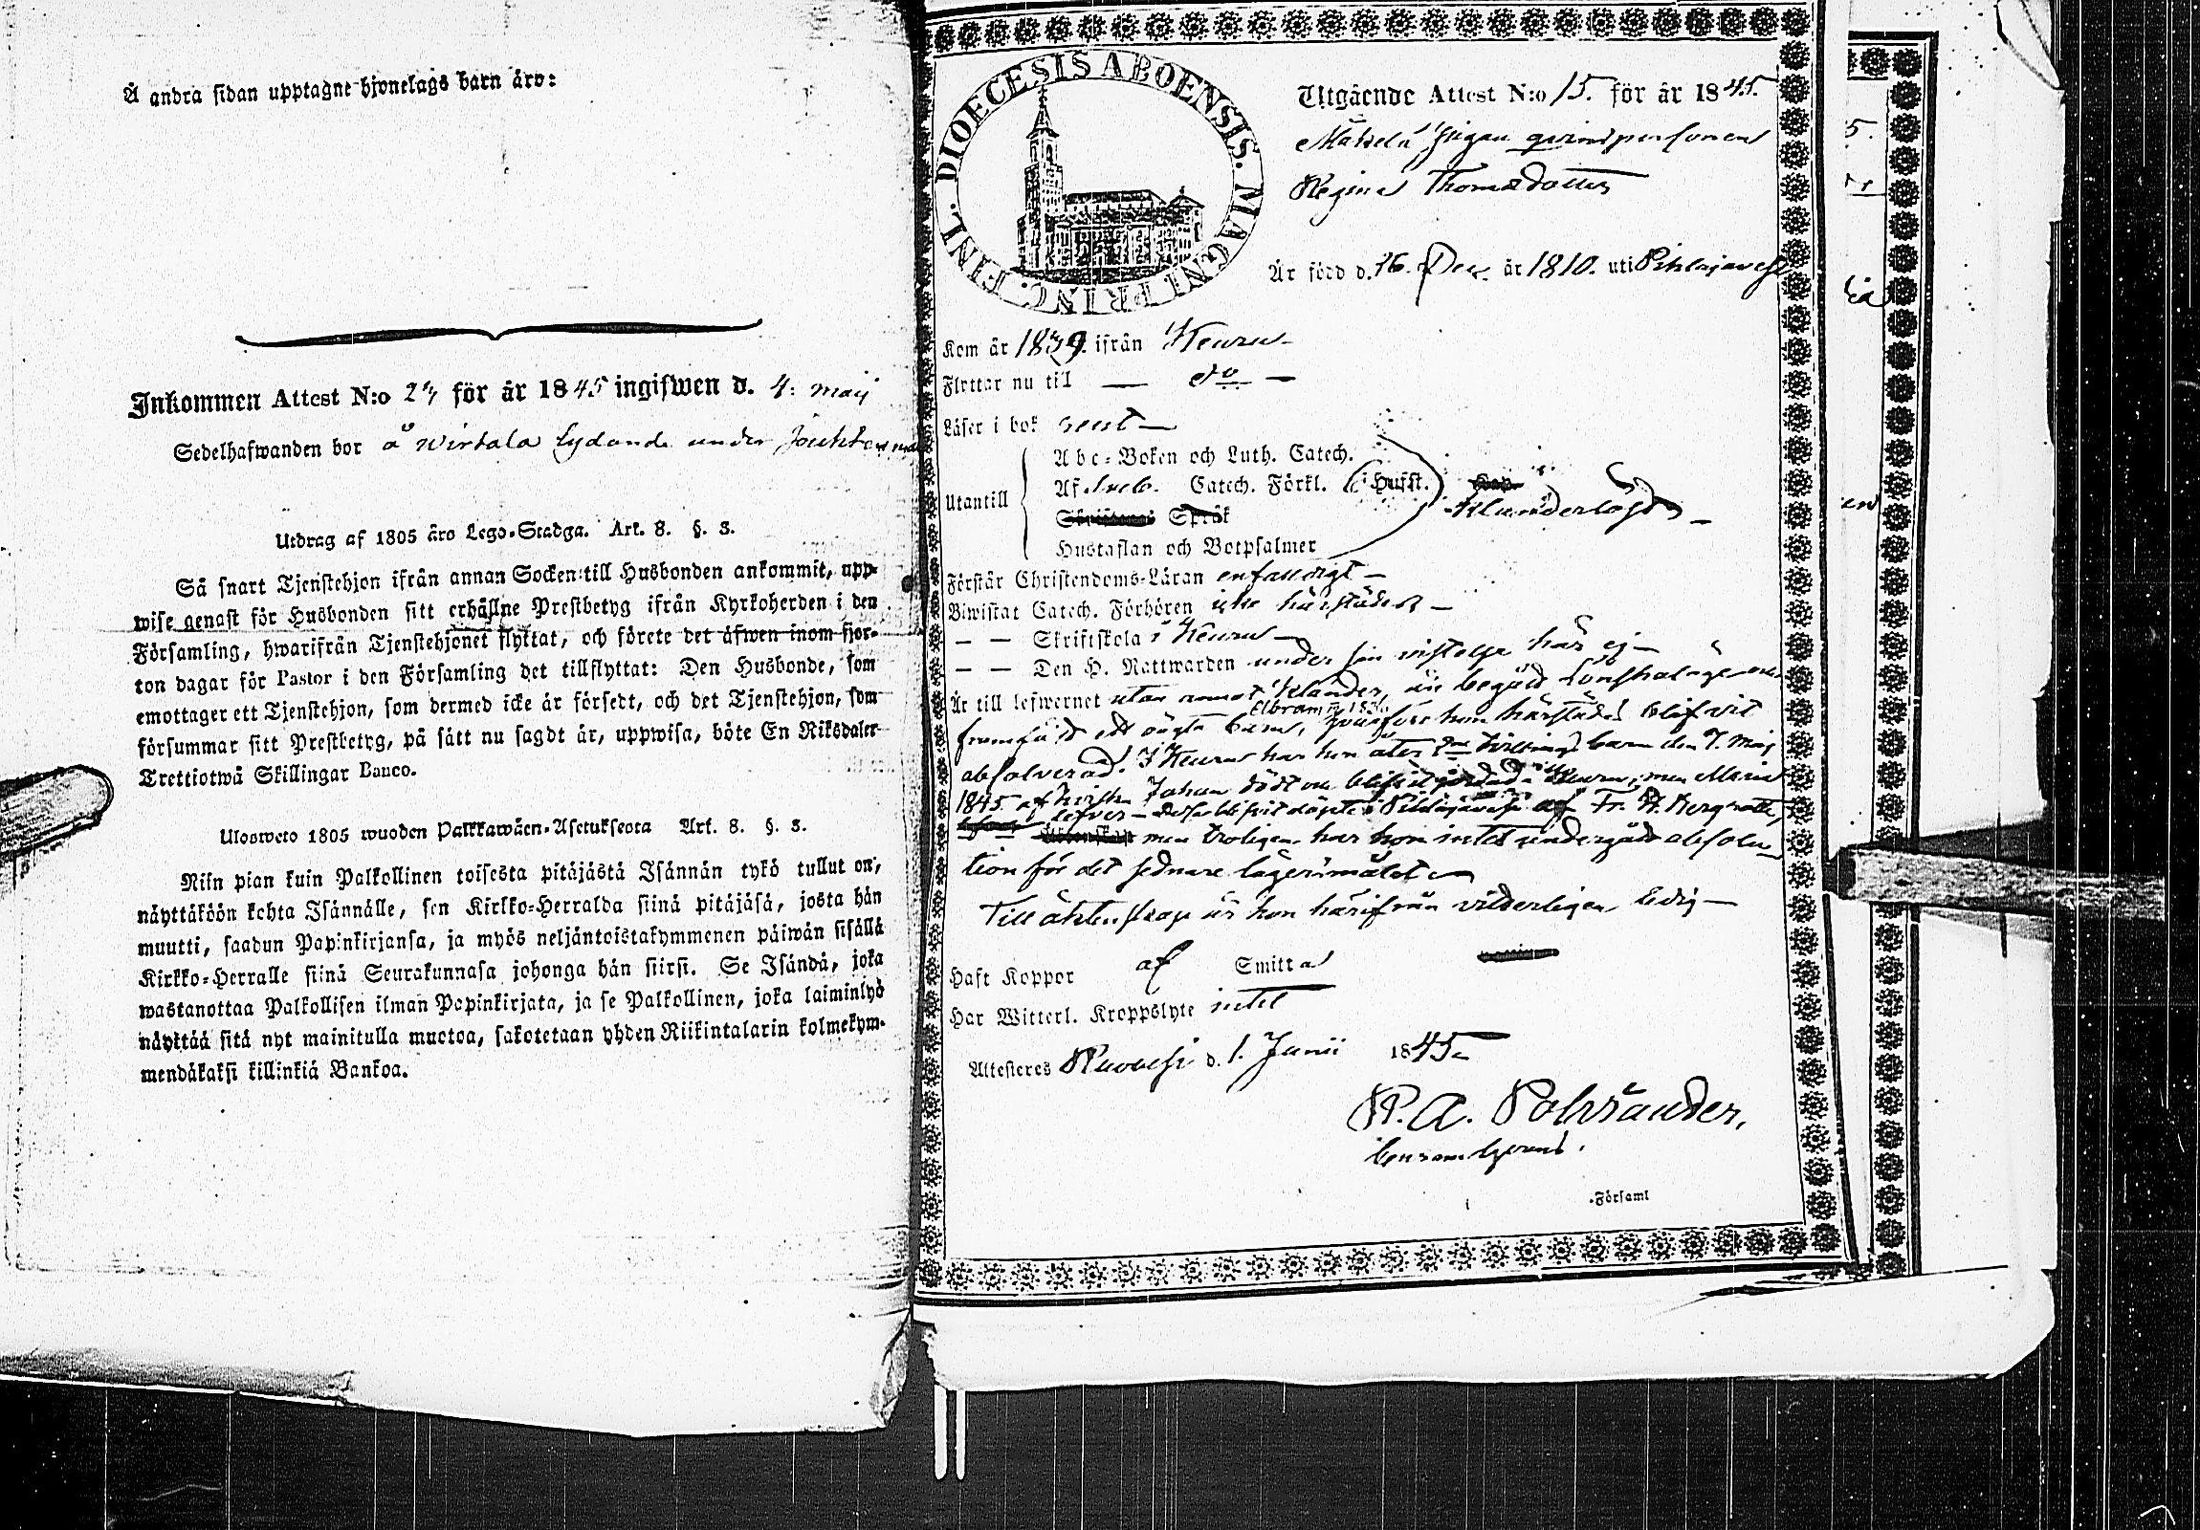 Å andra sidan upptagne hjonelags barn äro:
Inkommen Attest N:o för år 1845 ingifwen d. 4: maij
Sedelhafwanden bor å Wirtala lydande under
Utdrag af 1805 års Lego-Stadga. Art. 8. §. 3.
Så snart Tjenstehjon ifrån annan Socken till Husbonden ankommit, upp-
wise genast för Husbonden sitt erhållne Prestbetyg ifrån Kyrkoherden i den
Församling, hwarifrån Tjenstehjonet flyttat, och förete det äfwen inom fjor-
ton dagar för Pastor i den Församling det tillflyttat: Den Husbonde, som
emottager ett Tjenstehjon, som dermed icke är försedt, och det Tjenstehjon, som
försummar sitt Prestbetyg, på sätt nu sagdt är, uppwisa, böte En Riksdaler
Trettiotwå Skillingar Banco.
Ulosweto 1805 wuoden Palkkawäen-Asetuksesta Art. 8. §. 3.
Niin pian kuin Palkollinen toisesta pitäjästä Isännän tykö tullut on,
näyttäköön kohta Isännälle, sen Kirkko-Herralda siinä pitäjäsä, josta hän
muutti, saadun Papinkirjansa, ja myös neljäntoistakymmenen päiwän sisällä
Kirkko-Herralle siinä Seurakunnasa johonga hän siirsi. Se Isändä, joka
wastanottaa Palkollisen ilman Papinkirjata, ja se Palkollinen, joka laiminlyö
näyttää sitä nyt mainitulla muotoa, sakotetaan yhden Riikintalarin kolmekym-
mendäkaksi killinkiä Bankoa.
DIOECESIS ABOENSIS. MAGNI PRINC. FINL.
Utgående Attest N:o 15. för år 1845.
qvinspersonen
Regina Thomasdotter
Är född d. 16. Dec. år 1810. uti Pihlajavesi
Kom år 1839. ifrån Keuru
Flyttar nu till — do —
Läser i bok rent
Utantill
Abc-Boken och Luth. Catech.
Af Sveb. Catech. Förkl. (i Hufst.)
Språk
Hustaflan och Botpsalmer
Förstår Christendoms-Läran enfaldigt
Biwistat Catech. Förhören icke härstädes
— — Skriftskola i Keuru
— — Den H. Nattwarden under sin vistelse här ej
Är till lefwernet utan annat klander, än begådd
framfödt ett oägta barn, hvarföre hon härstädes blifvit
absolverad. I Keuru har hon åter barn den 7. Maij
1845 af hvilka Johan dödt men Maria
lefver — döpte i Pihlajavesi af
men troligen har hon intet undergådt absolu-
tion för det sednare lägersmålet
Till äktenskap är hon härifrån vitterligen ledig
Haft Koppor af Smitta
Har Witterl. Kroppslyte intet
Attesteras Ruovesi d. 1. Junii 1845
.Församl